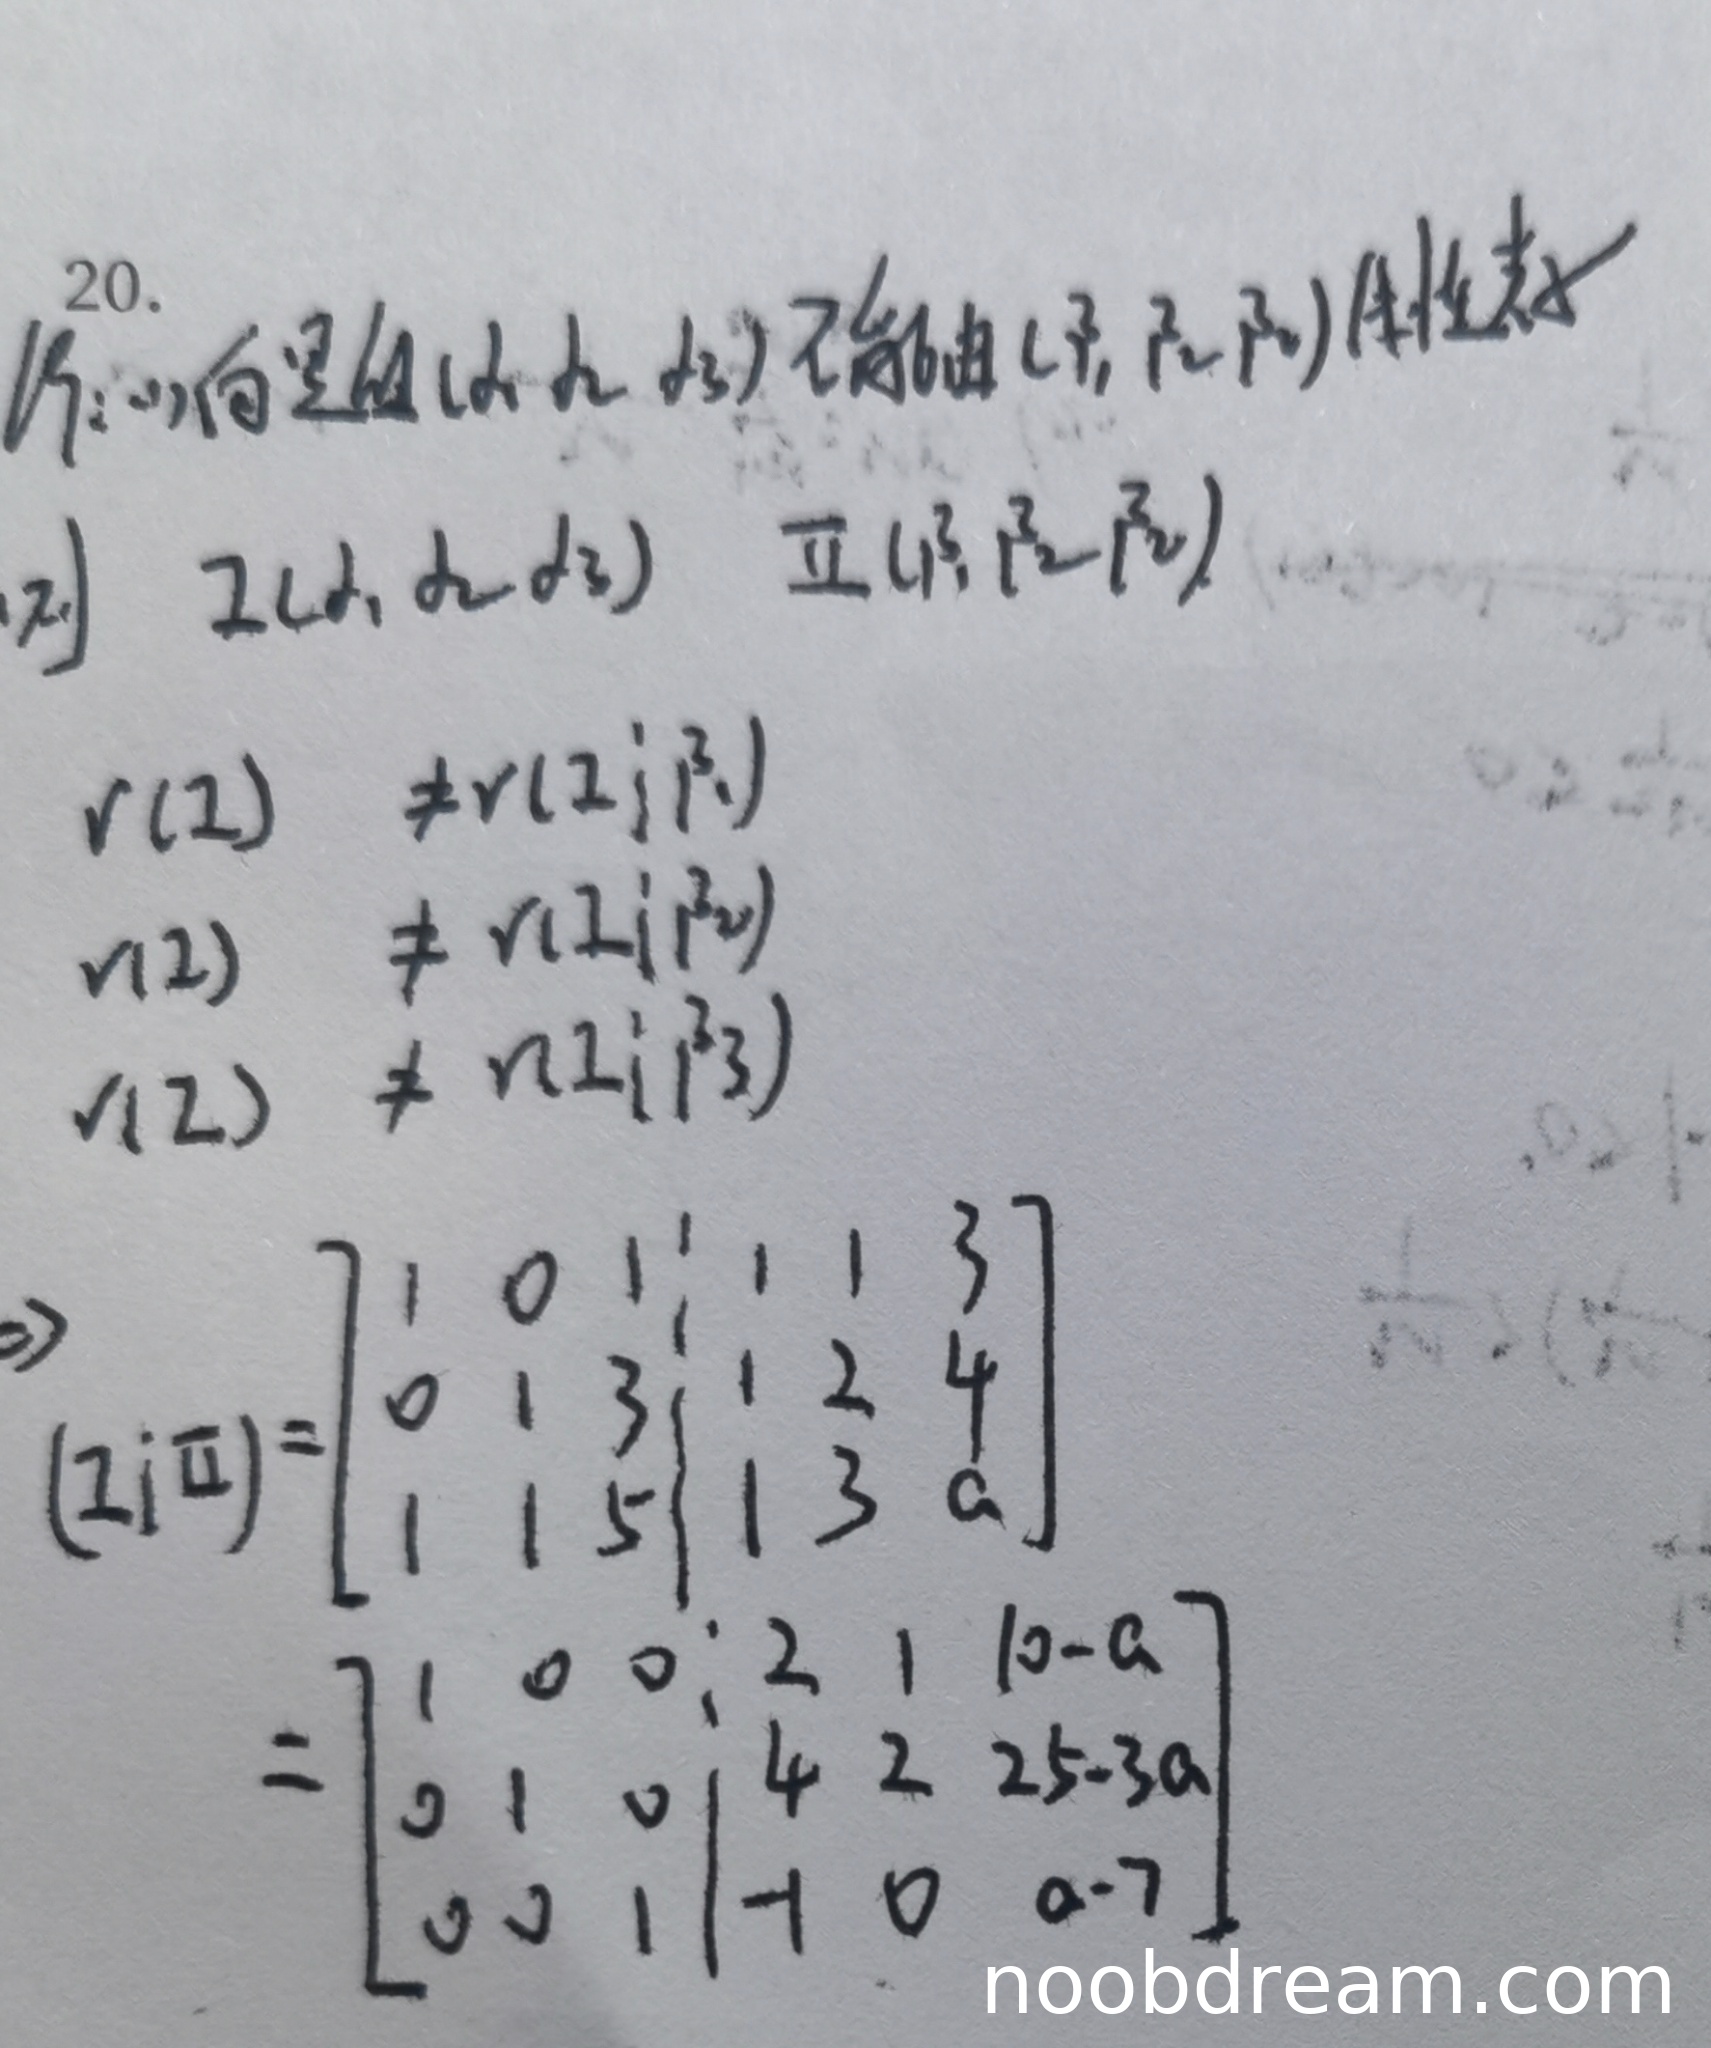 20.
解:(1)向量组(α₁ α₂ α₃)不能由(β₁ β₂ β₃)线性表示
I(α₁ α₂ α₃) Ⅱ(β₁ β₂ β₃)
r(I) ≠ r(I¦β₁)
r(I) ≠ r(I¦β₂)
r(I) ≠ r(I¦β₃)
⇒
(I¦Ⅱ) = [1 0 1 ¦ 1 1 3
0 1 3 ¦ 1 2 4
1 1 5 ¦ 1 3 a]
= [1 0 0 ¦ 2 1 10-a
0 1 0 ¦ 4 2 25-3a
0 0 1 ¦ -1 0 a-7]
noobdream.com